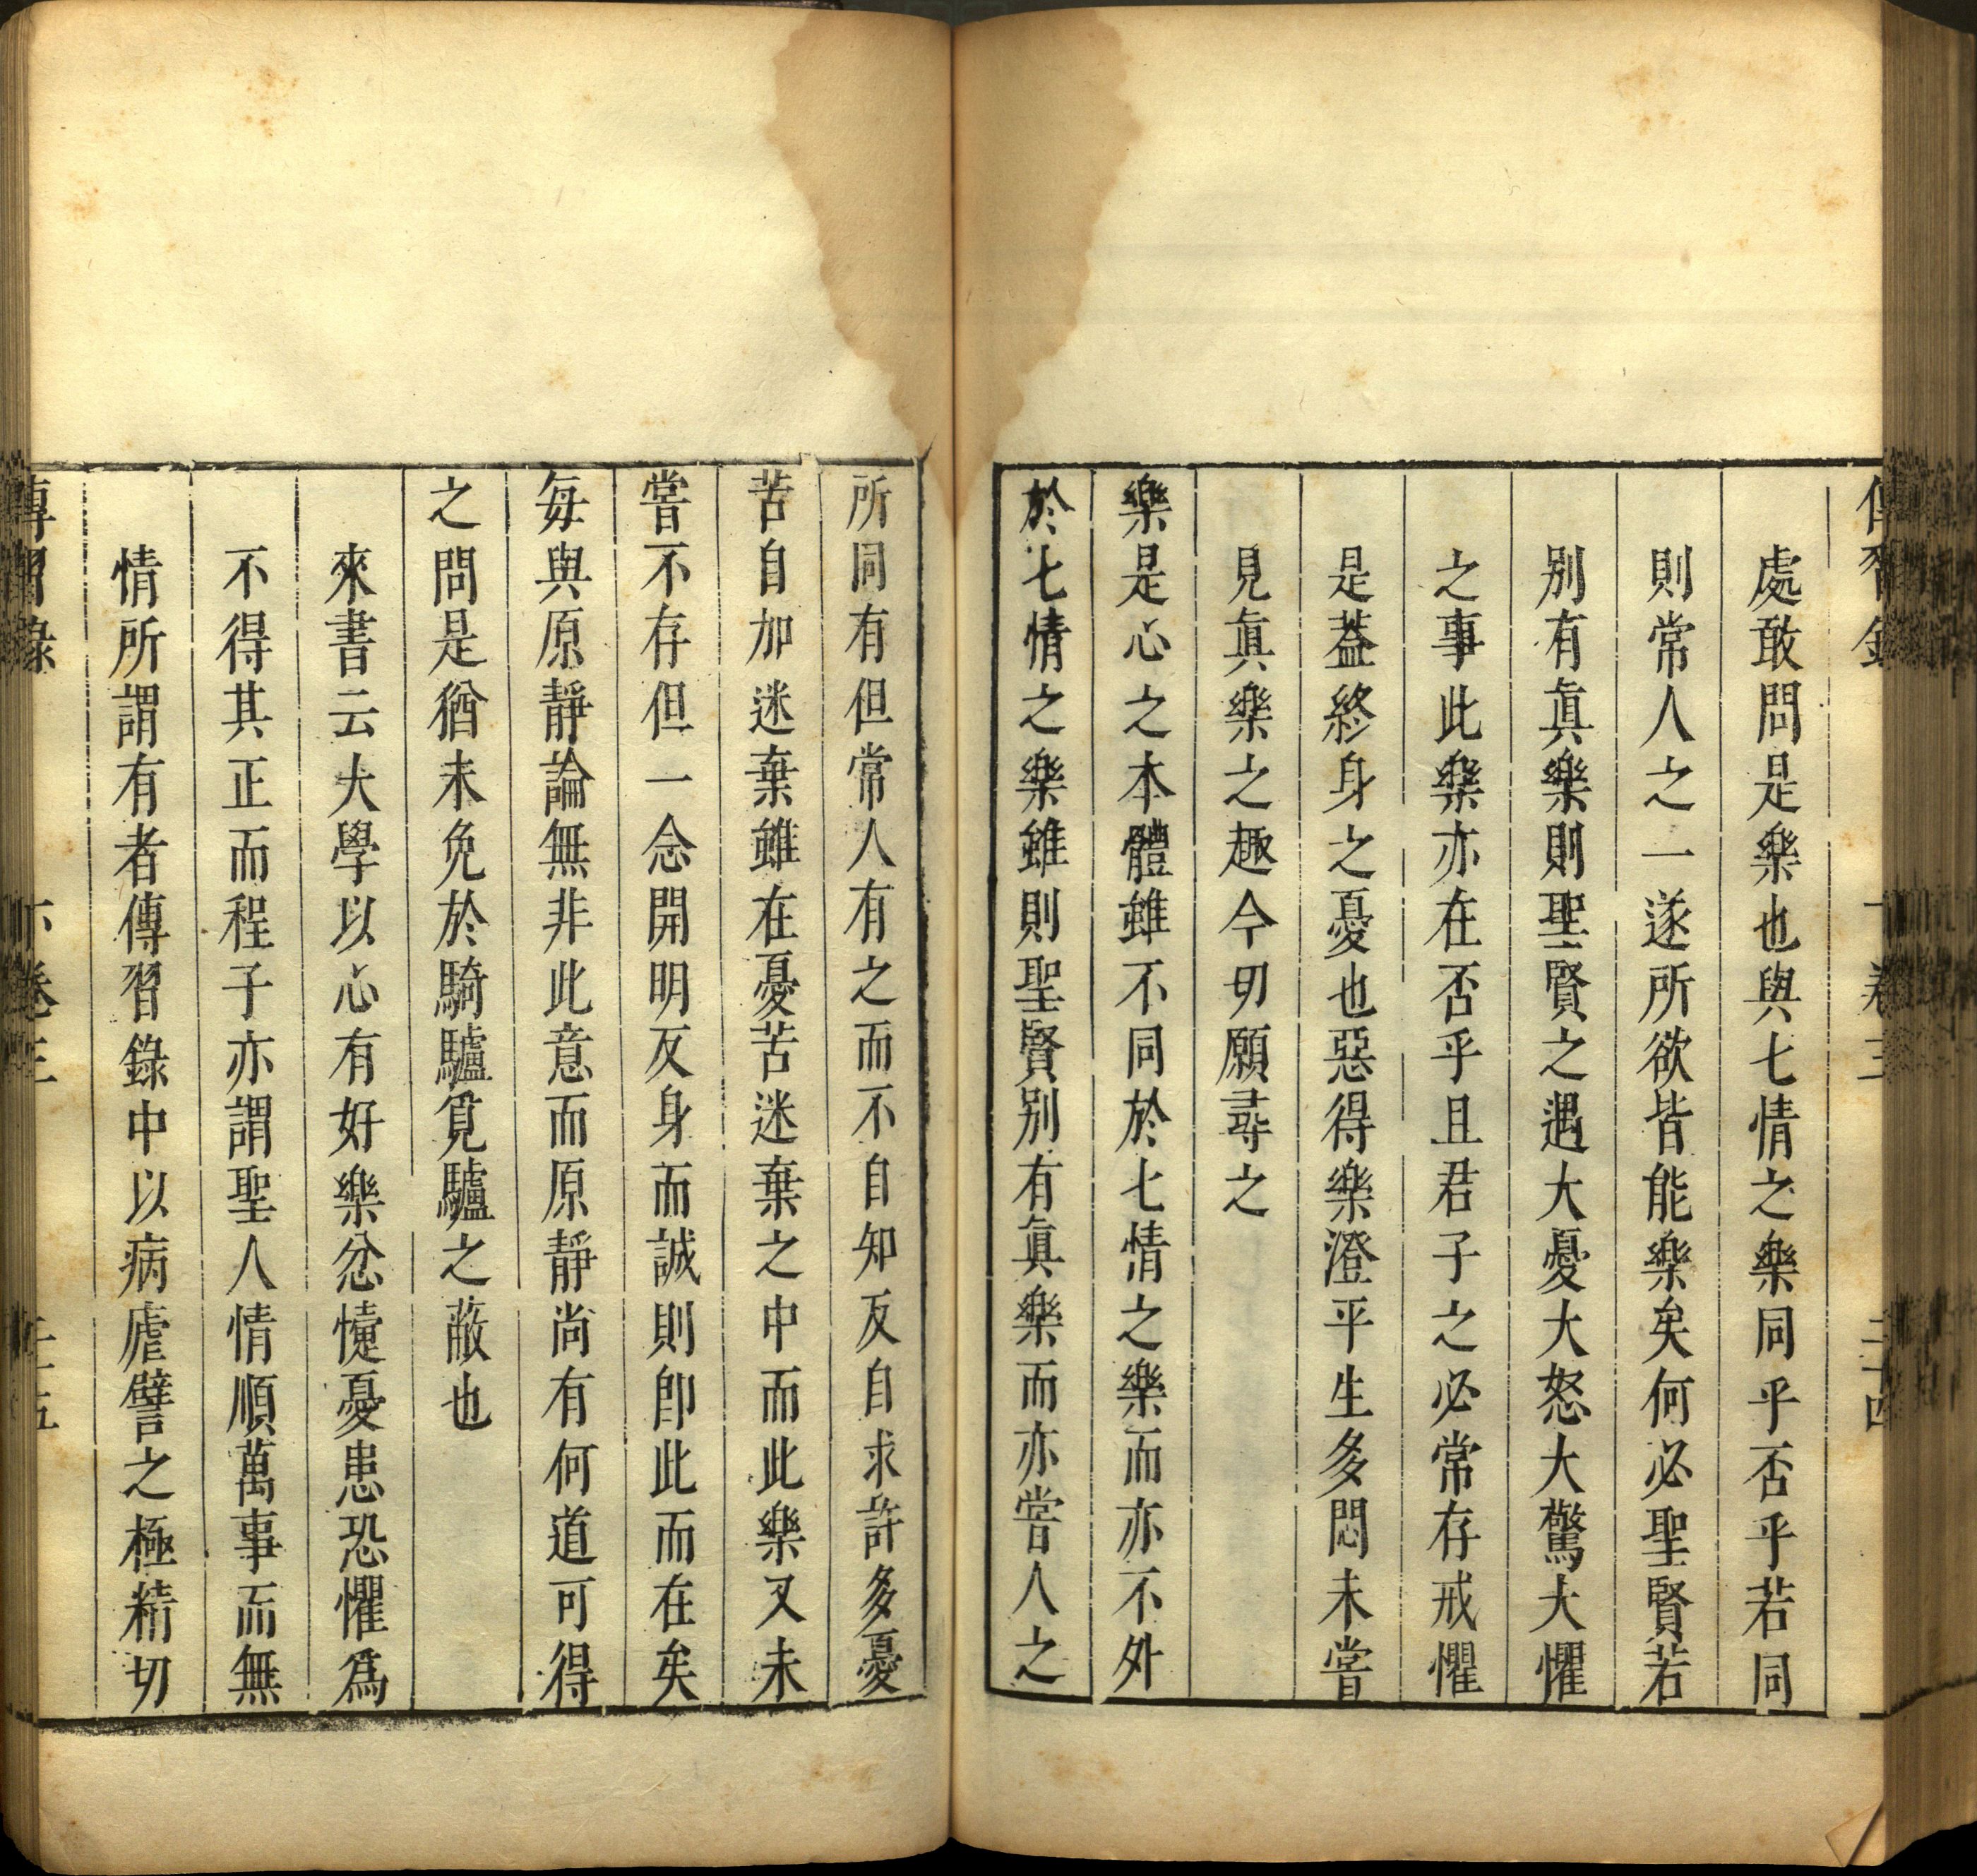 處敢問是樂也與七情之樂同乎否乎若同
則常人之一遂所欲皆能樂矣何必聖賢若
别有眞樂則聖賢之遇大憂大怒大驚大懼
之事此樂亦在否乎且君子之必常存戒懼
是葢終身之憂也惡得樂澄平生多悶未嘗
見眞樂之趣今切願尋之
樂是心之本體雖不同於七情之樂而亦不外
於七情之樂雖則聖賢别有眞樂而亦嘗人之
所同有但常人有之而不自知反自求許多憂
苦自加迷棄雖在憂苦迷棄之中而此樂又未
嘗不存但一念開明反身而誠則卽此而在矣
每與原靜論無非此意而原靜尚有何道可得
之問是猶未免於騎驢覓驢之蔽也
來書云大學以心有好樂忿懥憂患恐懼爲
不得其正而程子亦謂聖人情順萬事而無
情所謂有者傳習錄中以病瘧譬之極精切
傳習錄 下卷三 二十五